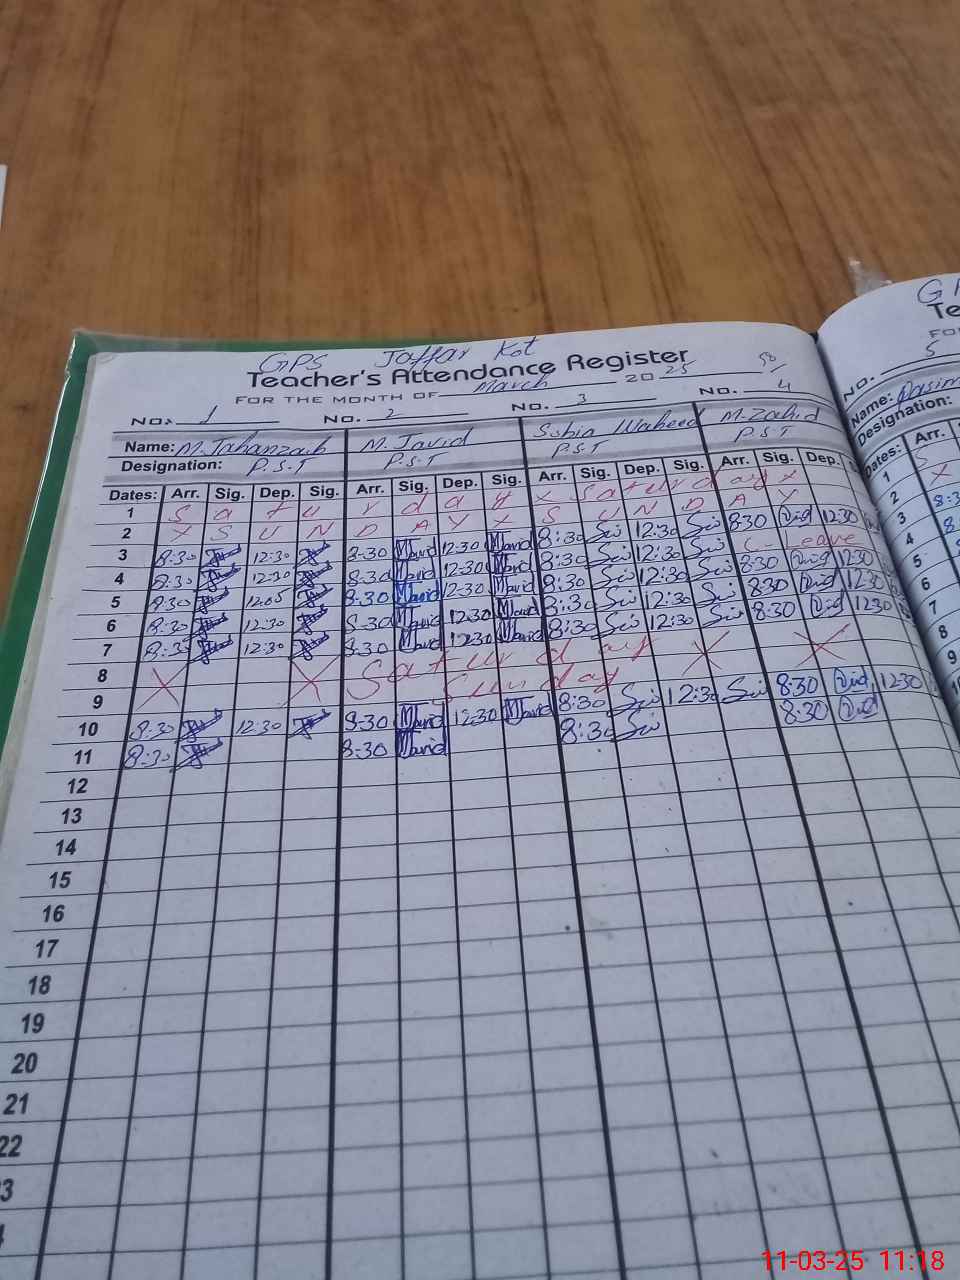 GPS Jaffar Kot
Teacher's Attendance Register
FOR THE MONTH OF March 2025
No. 1 No. 2 No. 3 No. 4
Name: M. Jahanzaib M. Javid Sobia Waheed M. Zahid
Designation: P.S.T P.S.T P.S.T P.S.T
Dates: Arr. Sig. Dep. Sig. Arr. Sig. Dep. Sig. Arr. Sig. Dep. Sig. Arr. Sig. Dep.
1 S a t u r d a y x S a t u r d a y x
2 x S U N D A Y x S U N D A Y
3 8:30 12:30 8:30 Mavid 12:30 Mavid 8:30 12:30 830 12:30
4 8:30 12:30 8:30 Mavid 12:30 Mavid 8:30 12:30 C. Leave
5 8:30 12:05 8:30 Mavid 12:30 Mavid 8:30 12:30 8:30 12:30
6 8:30 12:30 8:30 Mavid 12:30 Mavid 8:30 12:30 8:30 12:30
7 8:30 12:30 8:30 Mavid 12:30 Mavid 8:30 12:30 8:30 1230
8 Saturday
9 Sunday
10 8:30 12:30 8:30 Mavid 12:30 Mavid 8:30 12:30 8:30 12:30
11 8:30 8:30 Mavid 8:30 8:30
12
13
14
15
16
17
18
19
20
21
22
3
GP
Te
FO
No. 5
Name: Qasim
Designation:
Dates: Arr.
1
2
3
4
5
6
7
8
9
10
11-03-25 11:18